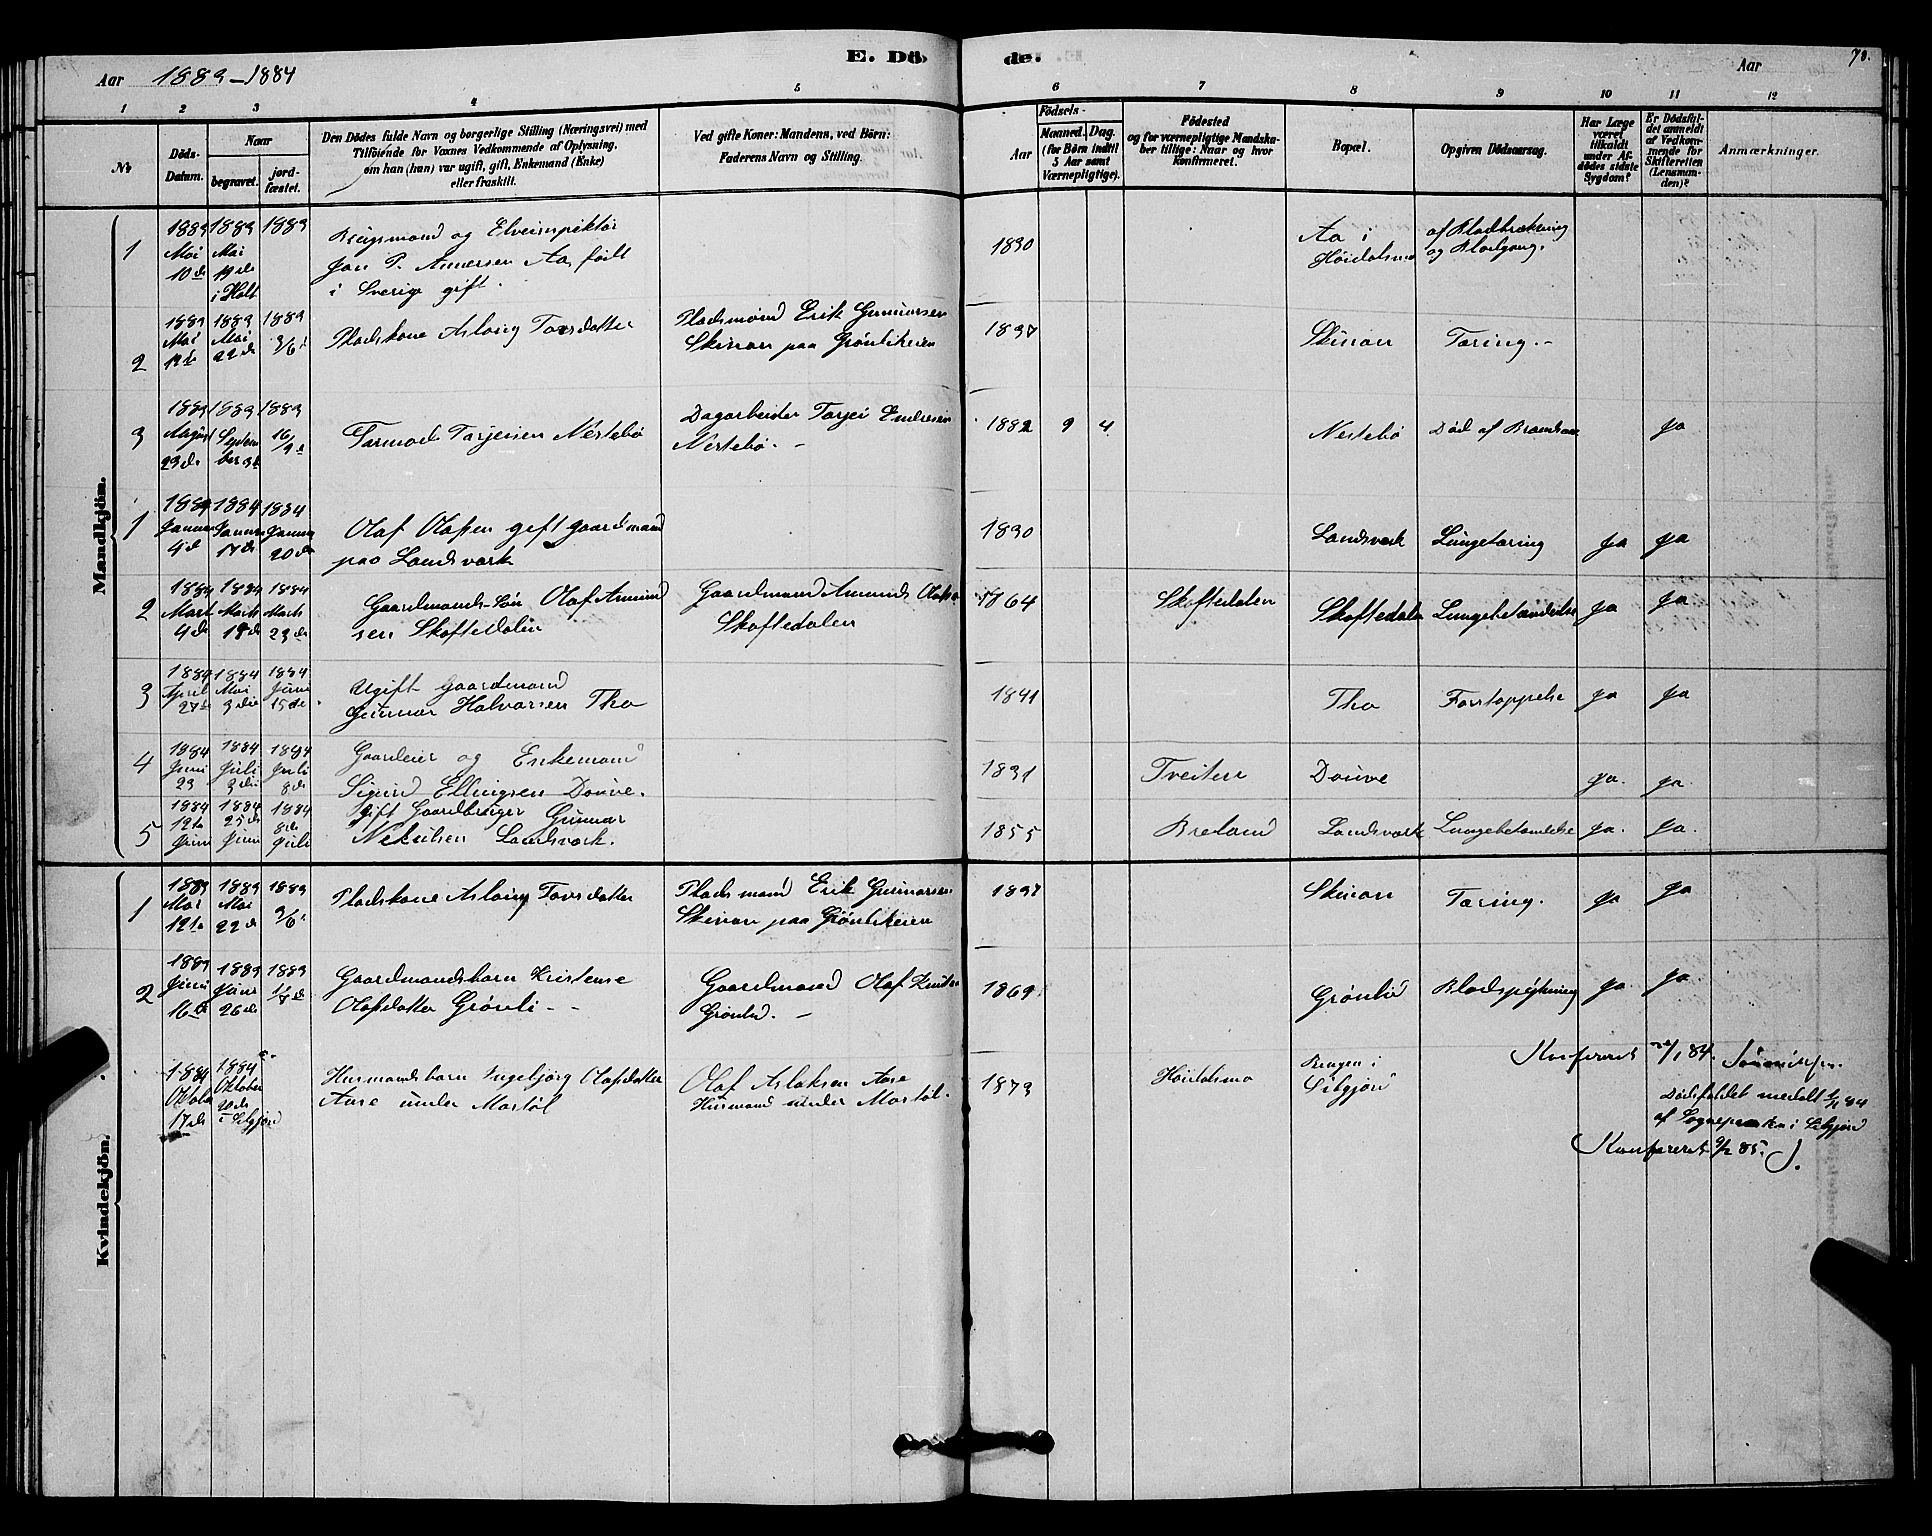 E. Dö de.
70.
Aar 1883-1884
Aar
1 2 3 4 5 6 7 8 9 10 11 12
No
Döds-Datum.
Naar
begravet.
jordfæstet.
Den Dödes fulde Navn og borgerlige Stilling (Næringsvei) med
Tilföiende for Voxnes Vedkommende af Oplysning,
om han (hun) var ugift, gift, Enkemand (Enke)
eller fraskilt.
Ved gifte Koner: Mandens, ved Börn:
Faderens Navn og Stilling.
Födsels-
Aar
Maaned. Dag.
(for Börn indtil
5 Aar samt
Værnepligtige).
Födested
og for værnepligtige Mandska-
ber tillige: Naar og hvor
Konfirmeret.
Bopæl.
Opgiven Dödsaarsag.
Har Læge
været
tilkaldt
under Af-
dödes sidste
Sygdom?
Er Dödsfal-
det anmeldt
af Vedkom-
mende for
Skifteretten
(Lensman-
den)?
Anmærkninger.
Mandkjön.
1 1883 Mai 10de 1883 Mai 19de i Holt 1883
Brugsmand og Elveinspektör
Jon P. Annersen Aa, født
i Sverige gift.
1830
Aa i
Høidalsmo
af Blodbrækning
og Blodgang.
2 1883 Mai 12te 1883 Mai 22de 1883 3/6
Pladskone Aslaug Torsdatter
Pladsmand Erik Gunnarsen
Skinan paa Grönlikeien
1837
Skinan
Tæring.-
3 1883 August 23de 1883 September 3de 1883 16/9
Tarmod Torjeisen Nestebö
Dagarbeider Torjei
Nestebö. -
1882 9 4
Nestebö
Död af
Ja
1 1884 Januar 4de 1884 Januar 17de 1884 Januar 20de
Olaf Olafsen gift gaardmand
paa Landsverk
1830
Landsverk
Lungetæring
Ja Ja
2 1884 Marts 4de 1884 Marts 18de 1884 Marts 23de
Gaardmands-Sön Olaf Amund
sen Skoftedalen
Gaardmand Amund Olafs
Skoftedalen
1864
Skoftedalen
Skoftedalen
Lungebetændelse
Ja Ja
3 1884 April 27de 1884 Mai 3die 1884 Juni 15de
Ugift Gaardmand
Gunnar Halvorsen Tho
1841
Tho
Forstoppelse
Ja Ja
4 1884 Juni 23 1884 Juli 3die 1884 Juli 8de
Gaardeier og Enkemand
Sigurd Ellingsen Douve.
1831
Tveiten
Douve
Ja. Ja.
5 1884 12te Juni 1884 25de Juni 1884 8de Juli
gift Gaardbruger Gunnar
Nekulsen Landsverk.
1855
Breland
Landsverk
Lungebetændelse
Ja. Ja.
Kvindekjön.
1 1883 Mai 12te 1883 Mai 22de 1883 3/6
Pladskone Aslaug Torsdatter
Pladsmand Erik Gunnarsen
Skinan paa Grönlikeien
1837
Skinan
Tæring.
Ja Ja
2 1883 Juni 16de 1883 Juni 26de 1883
Gaardmandsbarn Kristense
Olafsdatter Grönli - -
Gaardmand Olaf Knuts
Grönlid. -
1869
Grönlid
Blodspytning
Ja. Ja.
Konfereret /1 84.
1884 Oktober 17de 1884 Oktober 20de i Silgjord
Husmandsbarn Ingebjörg Olafsdatter
Aase under Mostöl
Olaf Aslaksen Aase
Husmand under Mostöl.
1873
Høidalsmo
i
Silgjord
Dödsfaldet meddelt
af Sognepræsten i Silgjord
Konfereret 9/2 85. J.